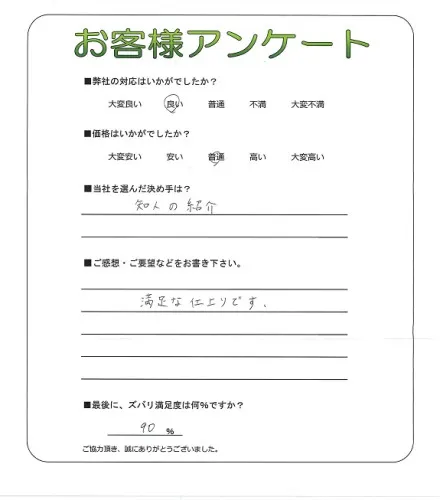 お客様アンケート
■弊社の対応はいかがでしたか？
大変良い 良い 普通 不満 大変不満
■価格はいかがでしたか？
大変安い 安い 普通 高い 大変高い
■当社を選んだ決め手は？
知人の紹介
■ご感想・ご要望などをお書き下さい。
満足な仕上りです.
■最後に、ズバリ満足度は何%ですか？
90 %
ご協力頂き、誠にありがとうございました。